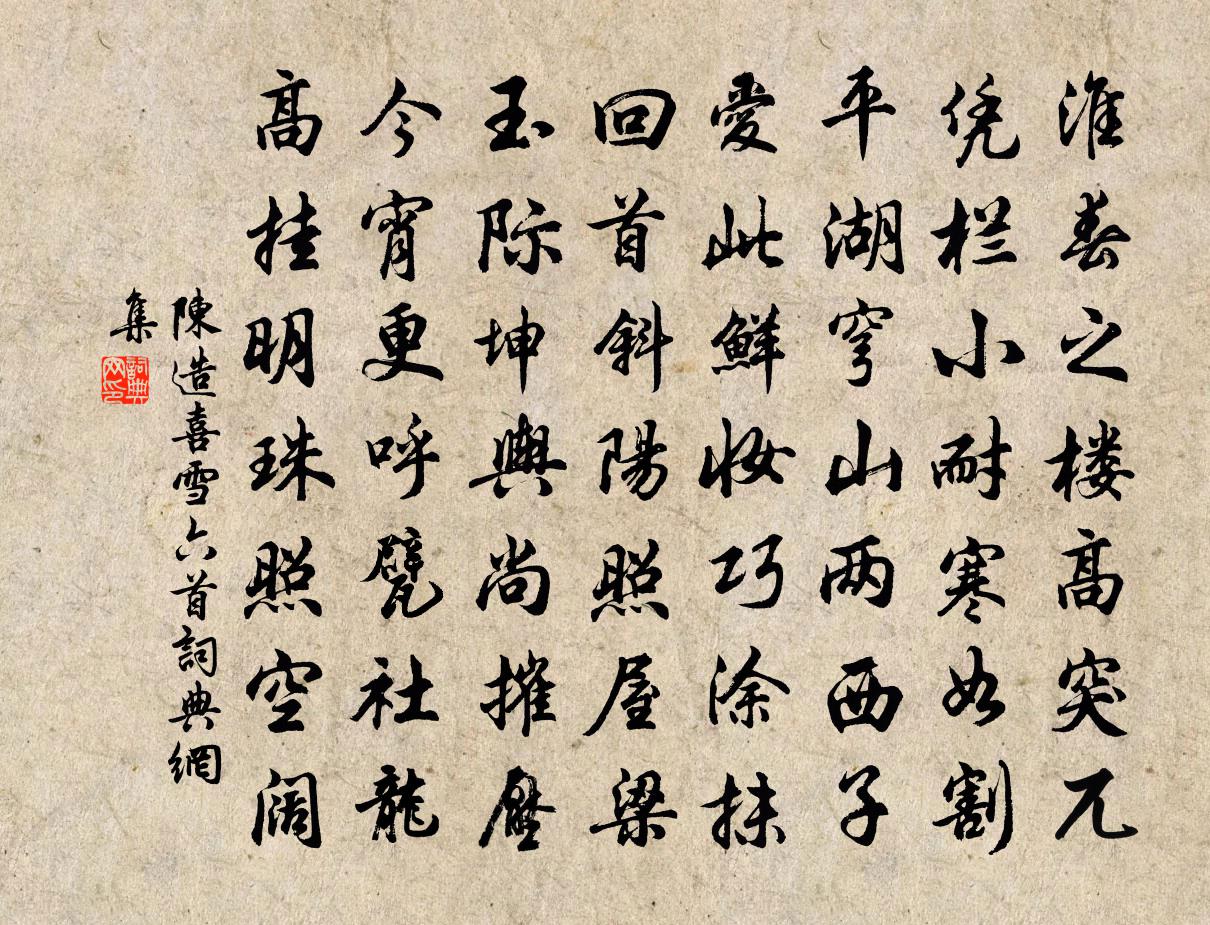 淮春之楼高突兀
凭栏小耐寒如割
平湖穹山两西子
爱此鲜妆巧涂抹
回首斜陽照屋梁
玉际坤舆尚摧壓
今宵更呼甓社龍
高挂明珠照空阔
陳造喜雪六首詞典網
集
詞典
网印